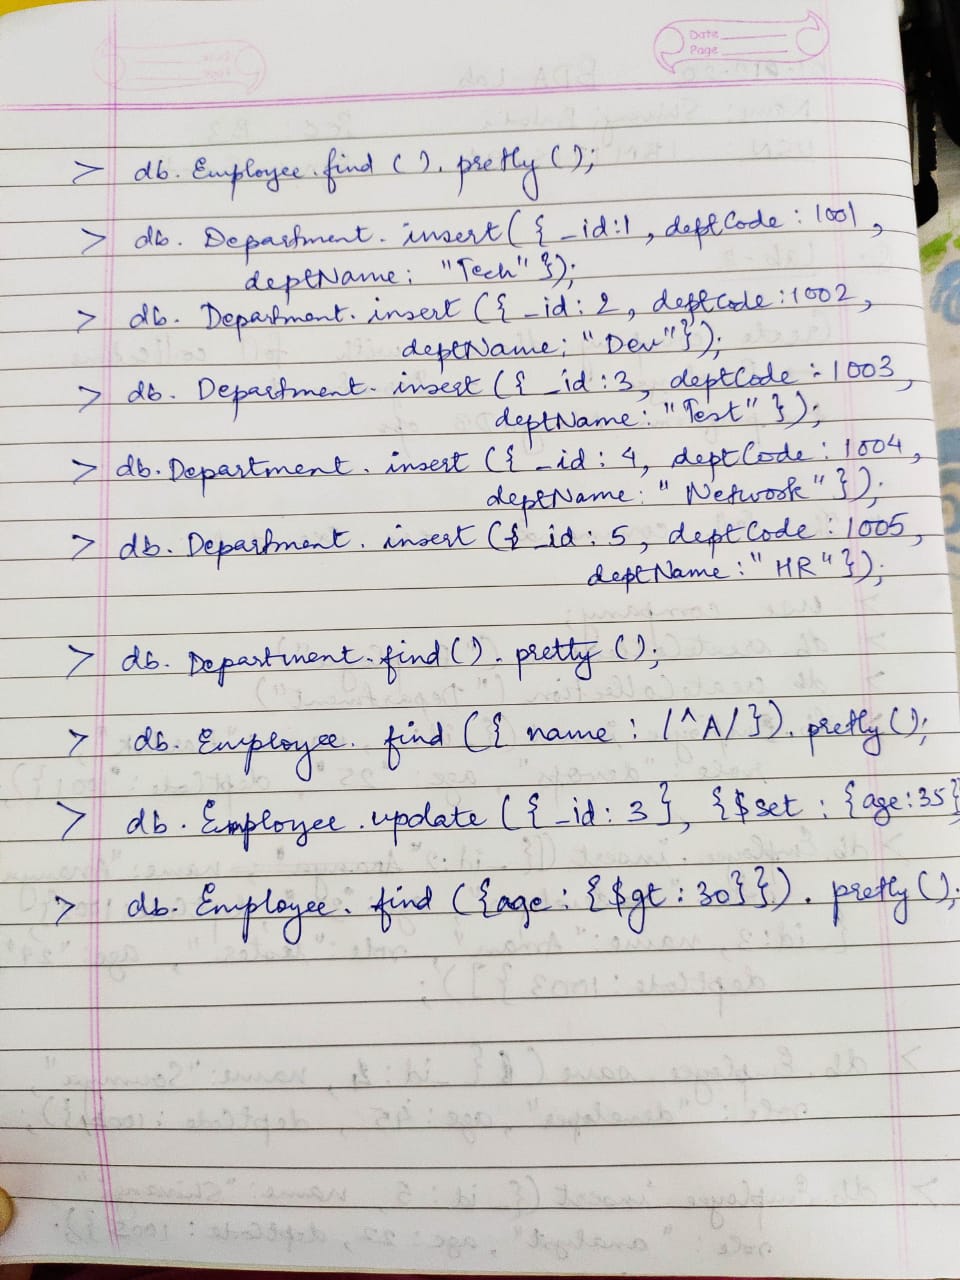 Date
Page
> db. Employee. find (). pretty ();
> db. Department. insert ({ _id:1, deptCode : 1001,
deptName: "Tech" });
> db. Department. insert ({ _id: 2, deptCode :1002,
deptName: "Dev"});
> db. Department. insert ({ _id :3, deptCode : 1003,
deptName: "Test" });
> db. Department. insert ({ _id : 4, deptCode : 1004,
deptName: "Network" });
> db. Department. insert ({ _id : 5, deptCode : 1005,
deptName : "HR"});
> db. Department. find(). pretty ();
> db. Employee. find ({ name : /^A/}). pretty();
> db. Employee. update ({ _id: 3 }, {$set : {age:35}
> db. Employee. find ({age: {$gt : 30}}). pretty();